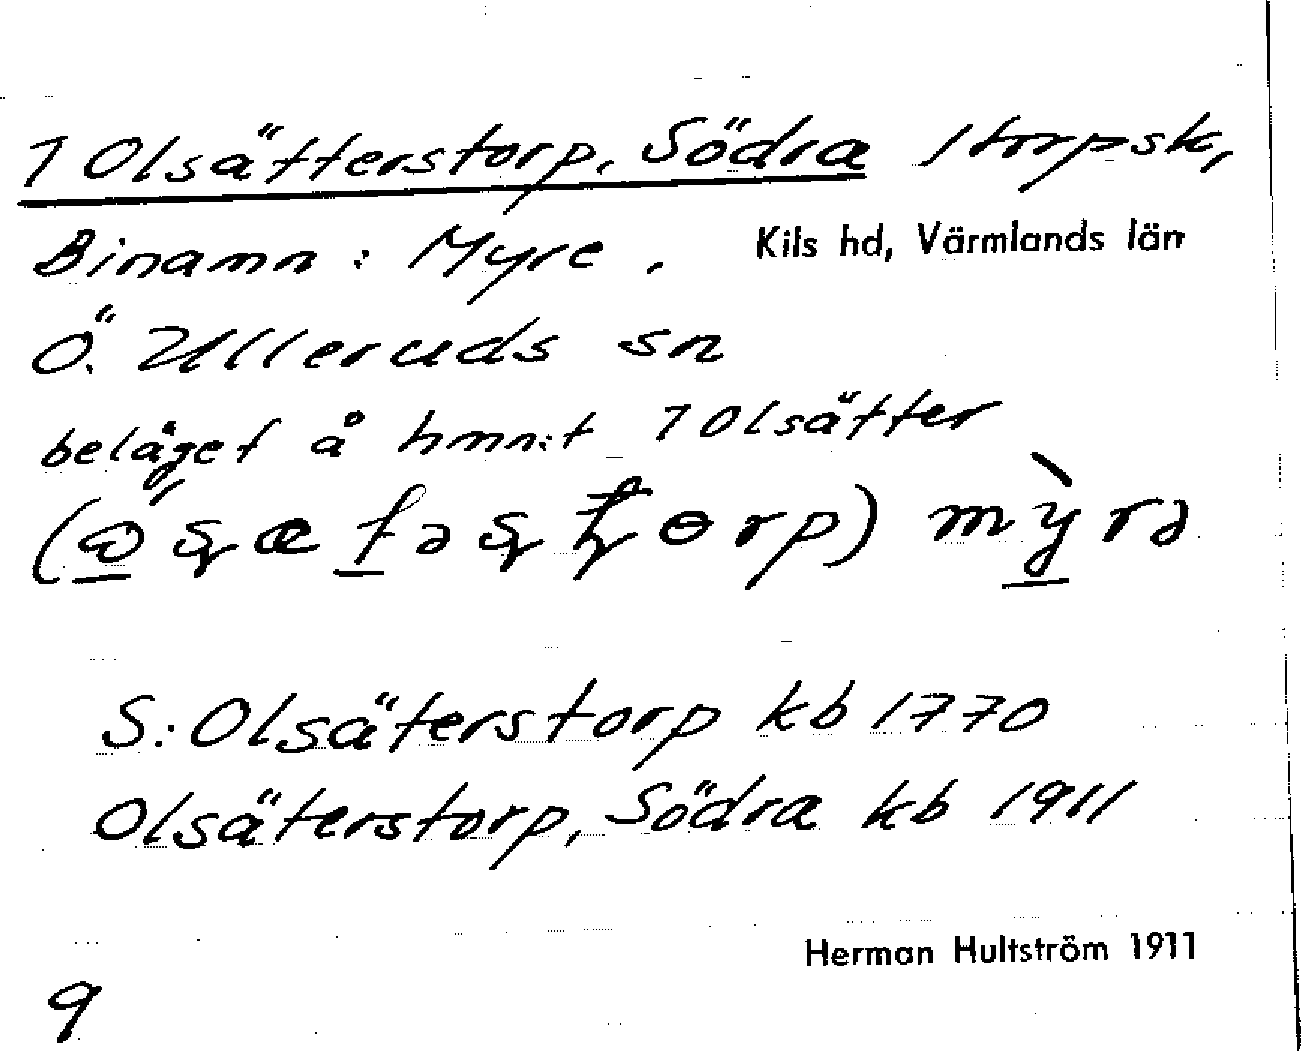 7 Olsätterstorp, Södra 1 torpsk,
Binamn: Myre. Kils hd, Värmlands län
Ö. Ulleruds sn
beläget å hmn:t 7 Olsätter
mỳrə
S: Olsäterstorp kb 1770
Olsäterstorp, Södra kb 1911
Herman Hultström 1911
9